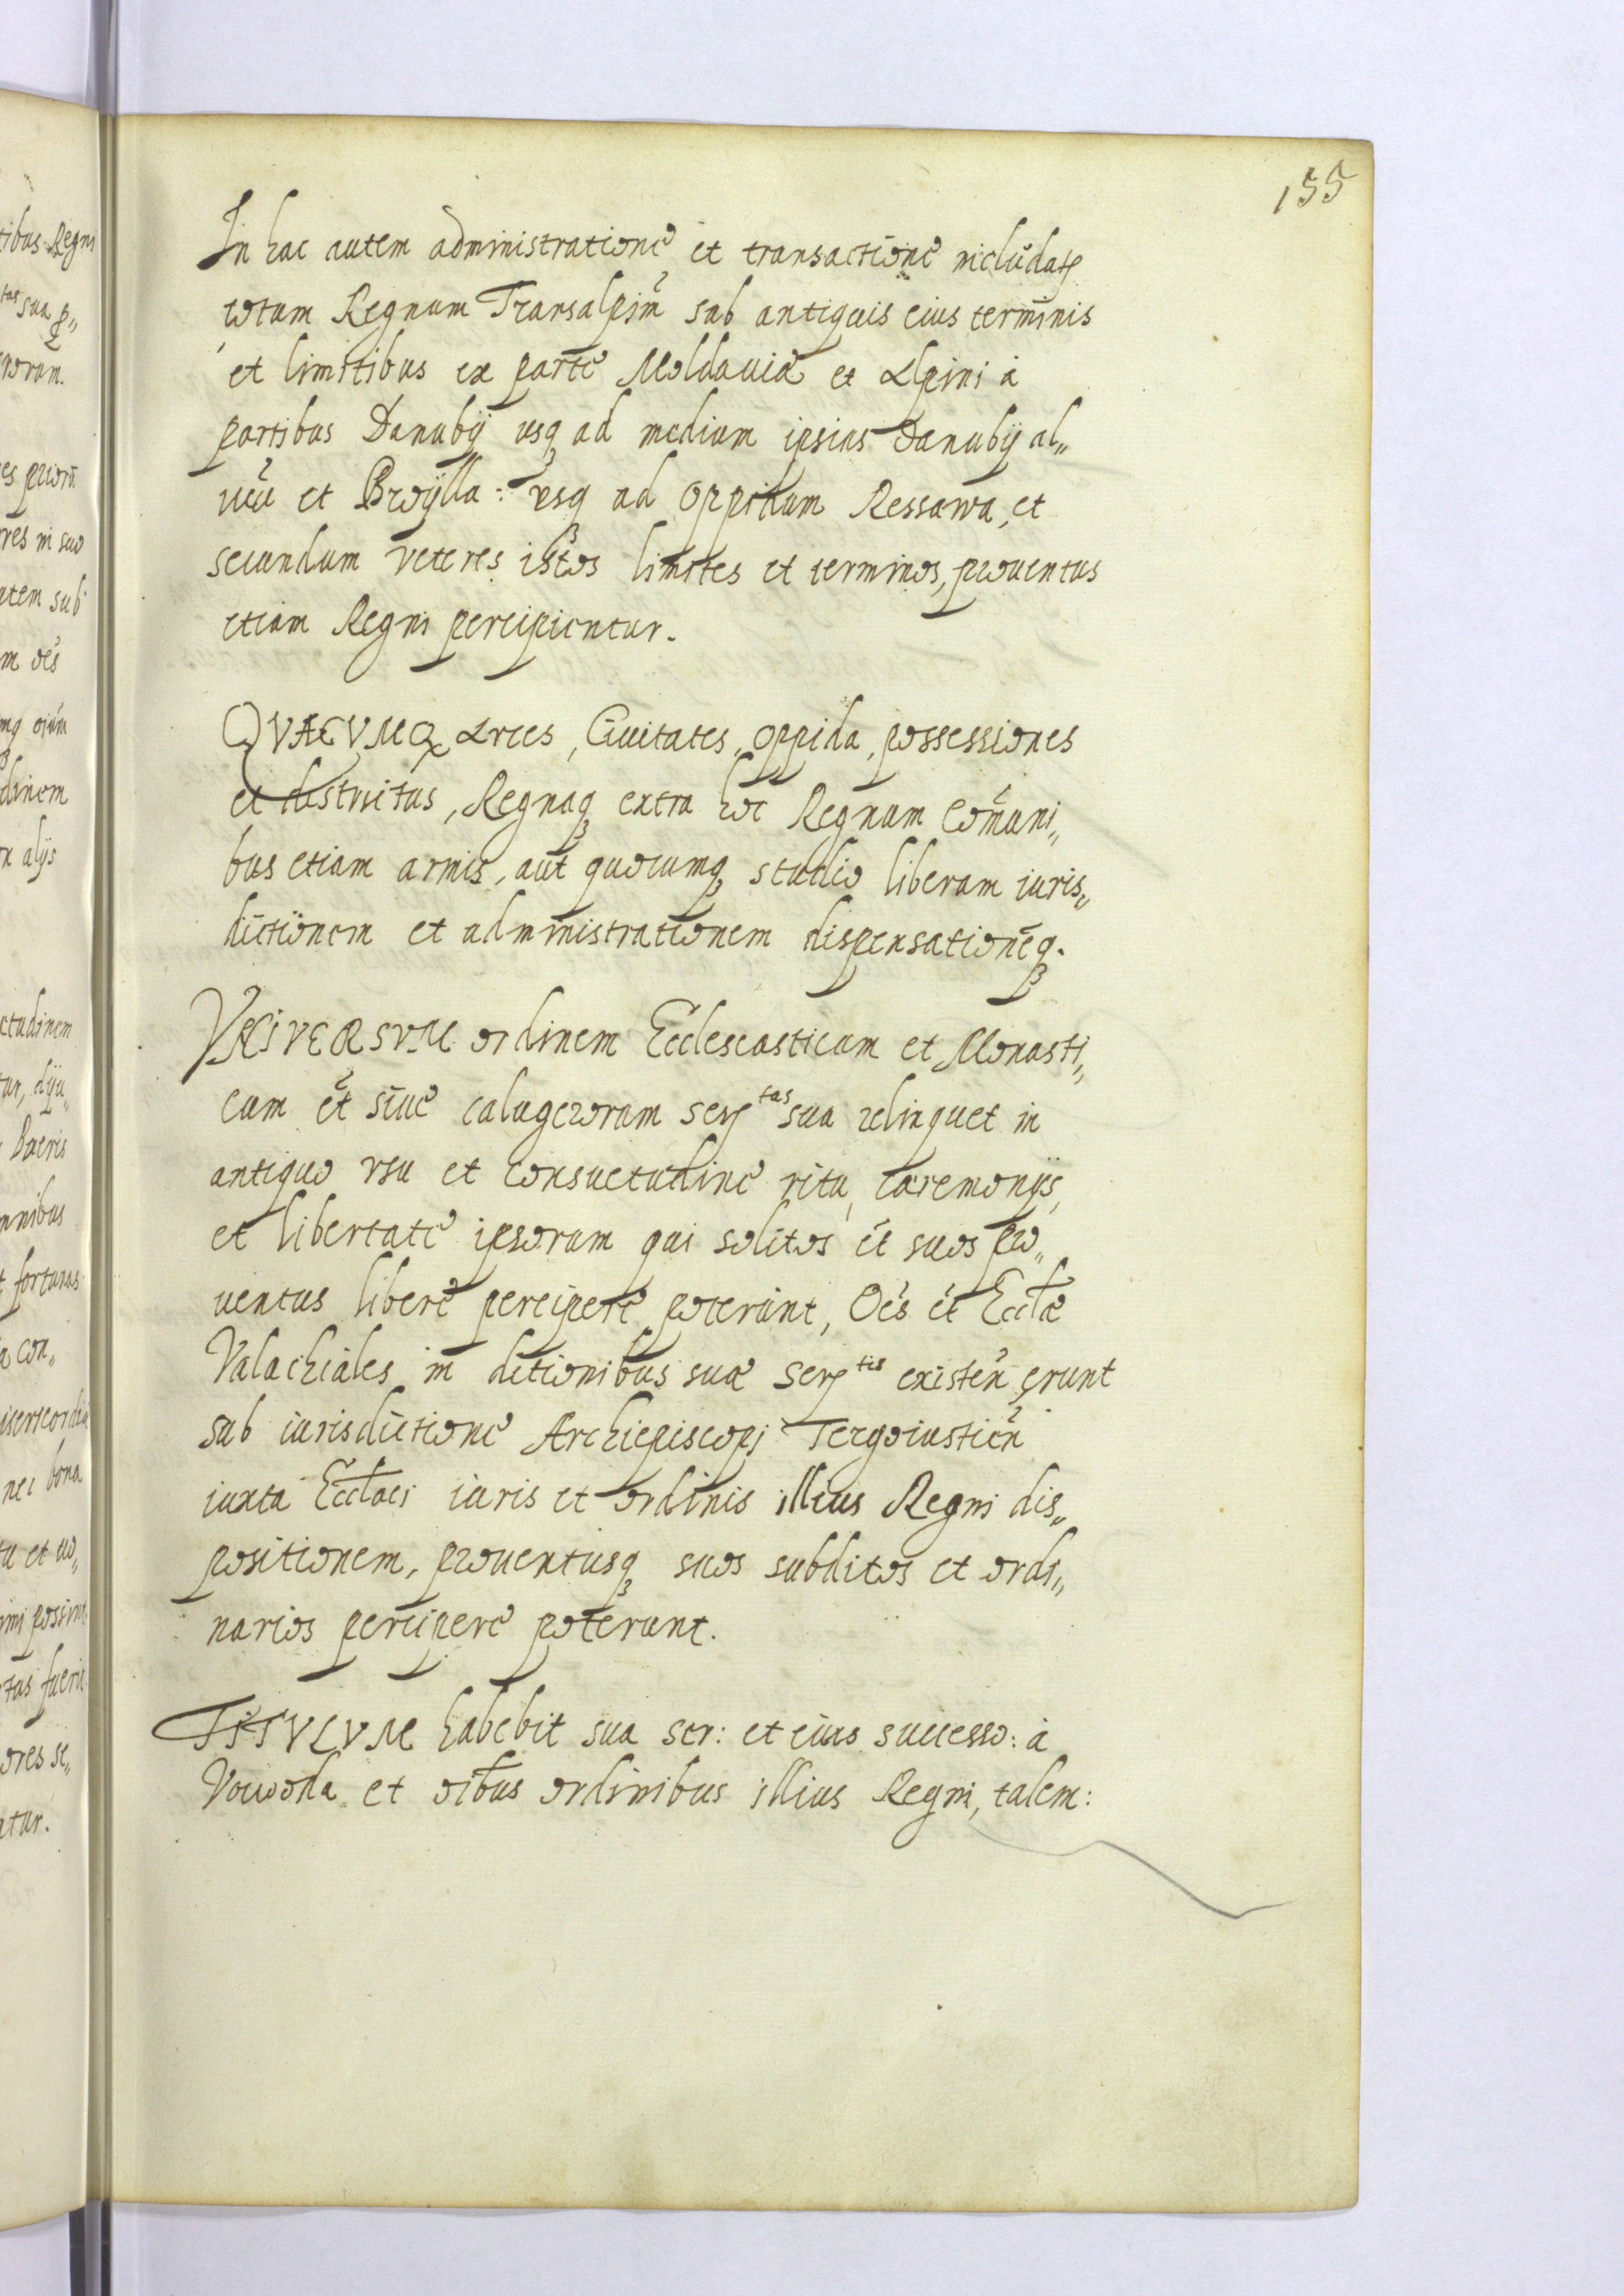 155
In hac autem administratione et transactione includat̃
totum Regnum Transalpinũ sub antiquis eius terminis
et limitibus ex parte Moldauiæ et Alpini à
partibus Danubij usq3 ad medium ipsius Danubij al„
ueũ et Broÿlla: vsq3 ad oppidum Ressawa, et
secundum veteres istos limites et terminos, prouentus
etiam Regni percipientur.
QVAECVMQ3 Arces, Ciuitates, oppida, possessiones
et districtus, Regnaq3 extra hoc Regnum com̃uni„
bus etiam armis, aut quocumq3 studio liberam iuris„
dictionem et administrationem dispensationẽq3.
VNIVERSVM ordinem Ecclesiasticum et Monasti„
cum et siue calugerorum Sertas sua relinquet in
antiquo vsu et consuetudine ritu, cæremonijs,
et libertate ipsorum qui solitos et suos pro„
uentus liberè percipere poterunt, Oẽs et Eccłæ
Valachiales in ditionibus suæ Sertis existeñ erunt
sub iurisdictione Archiepiscopi Tergouistieñ
iuxta Eccłaci iuris et ordinis illius Regni dis„
positionem, prouentusq3 suos subditos et ordi„
narios percipere poterunt.
TITVLVM habebit sua ser: et eius successo: à
Vouoda et oĩbus ordinibus illius Regni, talem:
tibus Regni
tas sua
uorum.
res in suo
utem sub
m oẽs
dinem
n alijs
ctudinem
nnibus
t fortunas
a con„
isericordia
nec bona
tu et uo„
imi possint
tus fuerit
ores se„
atur.